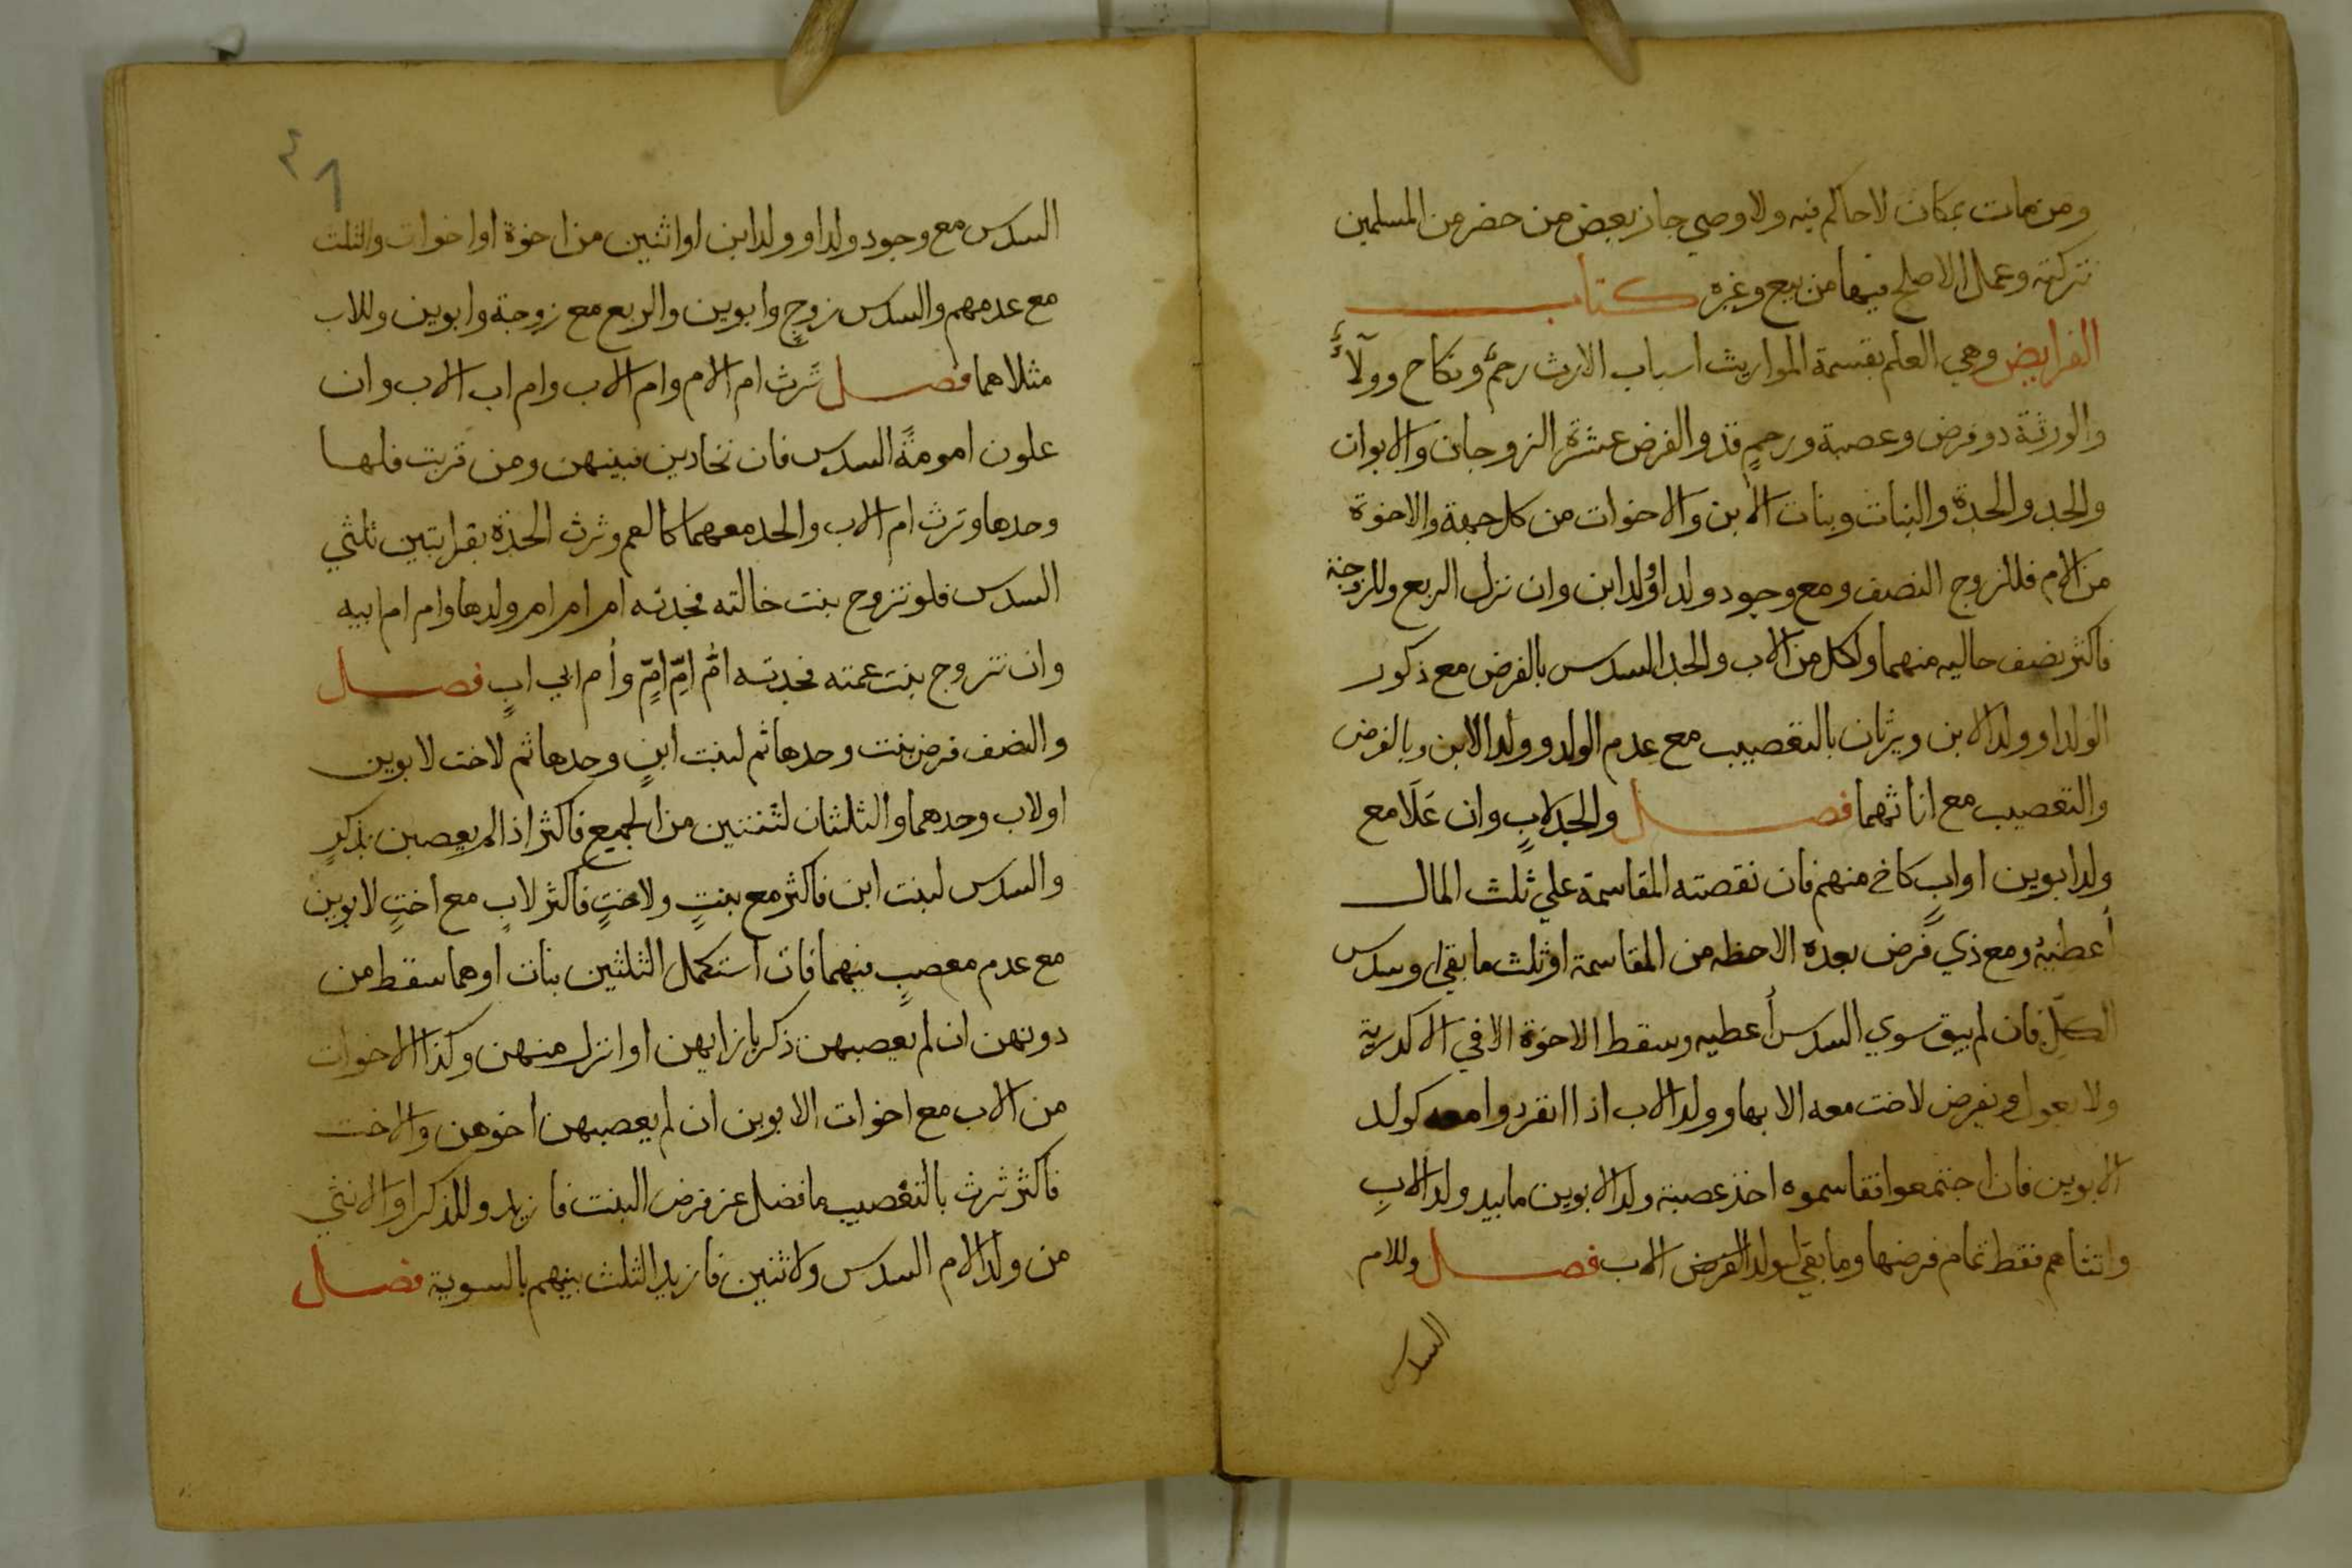 ومن مات بمكان لا حاكم فيه ولا وصي جاز بعض من حضر من المسلمين
تركته وعمل الاصلح فيها من بيع وغيره كتاب
الفرايض وهي العلم بقسمة المواريث اسباب الارث رحمٌ ونكاح وولآءٌ
والورثة ذو فرض وعصبة ورحمٍ فذو الفرض عشرة الزوجان والابوان
والجد والجدة والبنات وبنات الابن والاخوات من كل جهة والاخوة
من الام فللزوج النصف ومع وجود ولد او ولد ابن وان نزل الربع وللزوجة
فاكثر نصف حاليه منهما ولكل من الاب والجد السدس بالفرض مع ذكور
الولد او ولد الابن ويرثان بالتعصيب مع عدم الولد وولد الابن وبالفرض
والتعصيب مع اناثهما فصل والجد لابٍ وان عَلَا مع
ولد ابوين او ابٍ كاخ منهم فان نقصته المقاسمة على ثلث المال
أعطيه ومع ذي فرض بعده الاحظ من المقاسمة او ثلث ما بقي او سدس
الكل فان لم يبق سوي السدس أعطيه وسقط الاخوة الا في الاكدرية
ولا يعول ويفرض لاخت معه الا بها وولد الاب اذا انفردوا معه كولد
الابوين فان اجتمعوا فقاسموه اخذ عصبة ولد الابوين ما بيد ولد الابِ
وانثاهم فقط تمام فرضها وما بقي لولد الاب فصل وللام
السدس
٤١
السدس مع وجود ولد او ولد ابن او اثنين من اخوة او اخوات والثلث
مع عدمهم والسدس زوجٍ وابوين والربع مع زوجة وابوين وللاب
مثلاهما فصل تَرث ام الام وام الاب وام اب الاب وان
علون امومةً السدس فان تحاذين فبينهن ومن قربت فلها
وحدها وترث ام الاب والجد معهما كالعم وترث الجدة بقرابتين ثلثي
السدس فلو تزوج بنت خالته فجدته ام ام ام ولدها وام ام ابيه
وان تزوج بنت عمته فجدته امُّ امِّ امٍّ وأم ابي ابٍ فصل
والنصف فرض بنت وحدها ثم لبنت ابنٍ وحدها ثم لاخت لابوين
او لاب وحدهما والثلثان لثنتين من الجميع فاكثر اذا لم يعصبن بذكرٍ
والسدس لبنت ابن فاكثر مع بنتٍ ولاختٍ فاكثر لابٍ مع اختٍ لابوين
مع عدم معصبٍ فيهما فان استكمل الثلثين بنات او هما سقط من
دونهن ان لم يعصبهن ذكر بازايهن او انزل منهن وكذا الاخوات
من الاب مع اخوات الابوين ان لم يعصبهن اخوهن والاخت
فاكثر ترث بالتعصيب ما فضل عن فرض البنت فازيد وللذكر او الانثي
من ولد الام السدس ولاثنين فازيد الثلث بينهم بالسوية فصل